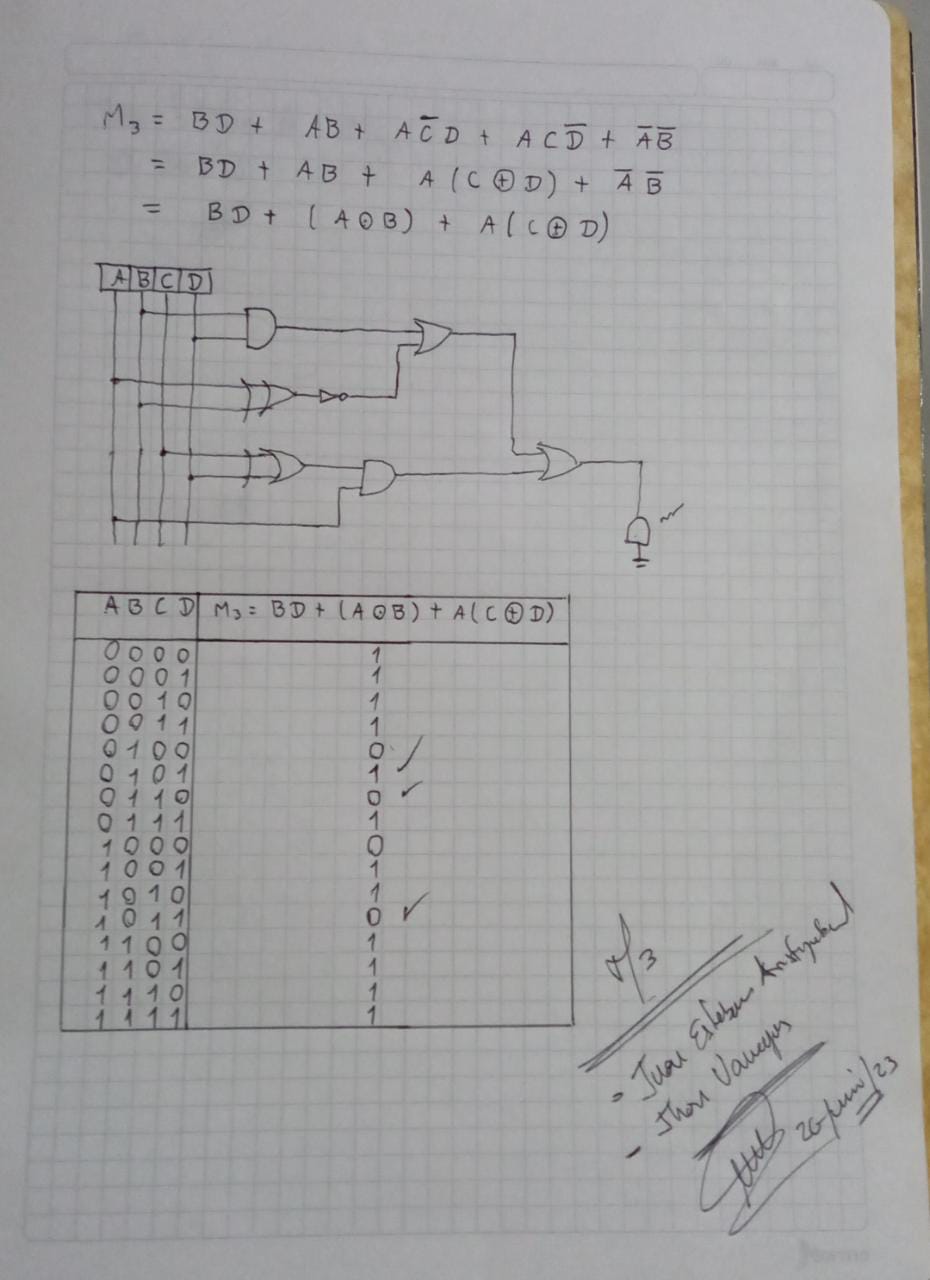 M₃ = BD + AB + AC̅D + ACD̅ + A̅B̅
= BD + AB + A(C⊕D) + A̅ B̅
= BD + (A⊙B) + A(C⊕D)
A B C D
A B C D M₃ = BD + (A⊙B) + A(C⊕D)
0 0 0 0 1
0 0 0 1 1
0 0 1 0 1
0 0 1 1 1
0 1 0 0 0 ✓
0 1 0 1 1
0 1 1 0 0 ✓
0 1 1 1 1
1 0 0 0 0
1 0 0 1 1
1 0 1 0 1
1 0 1 1 0 ✓
1 1 0 0 1
1 1 0 1 1
1 1 1 0 1
1 1 1 1 1
- Juan Esteban
- Jhon Vanegas
26/Juni/23